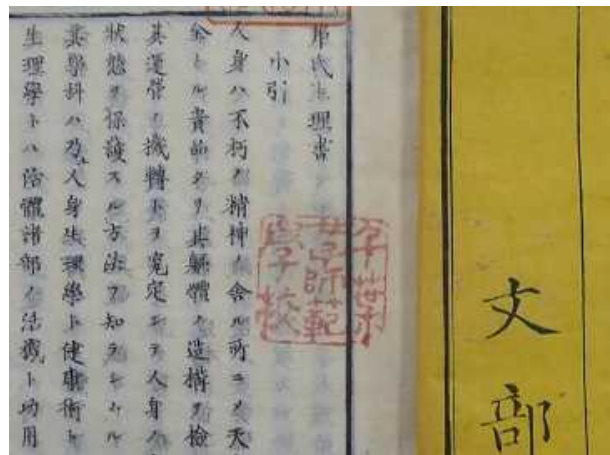 文部
氏生理書
小引
人身ハ不朽ノ精神ノ舍ル所ニメ天
貴的ナリ其軀體ノ造構ヲ檢
其運營ノ機轉トヲ究定シテ人身ノ
狀態ヲ保護スル方法ヲ知ラシムル
其學科ハ乃人身生理學ト健康術ト
生理學トハ活體諸部ノ活機ト功用
千葉
女子師範
學校